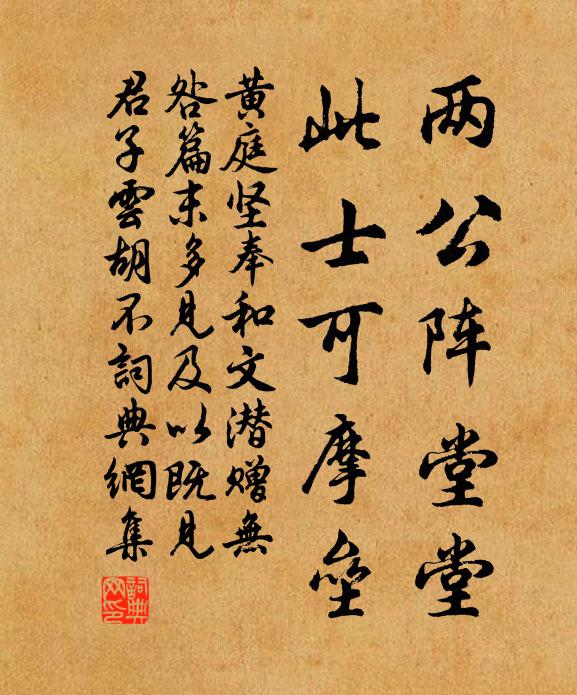 两公阵堂堂
此士可摩垒
黄庭坚奉和文潜赠無
咎篇末多见及以既见
君子雲胡不詞典網集
詞典
网印